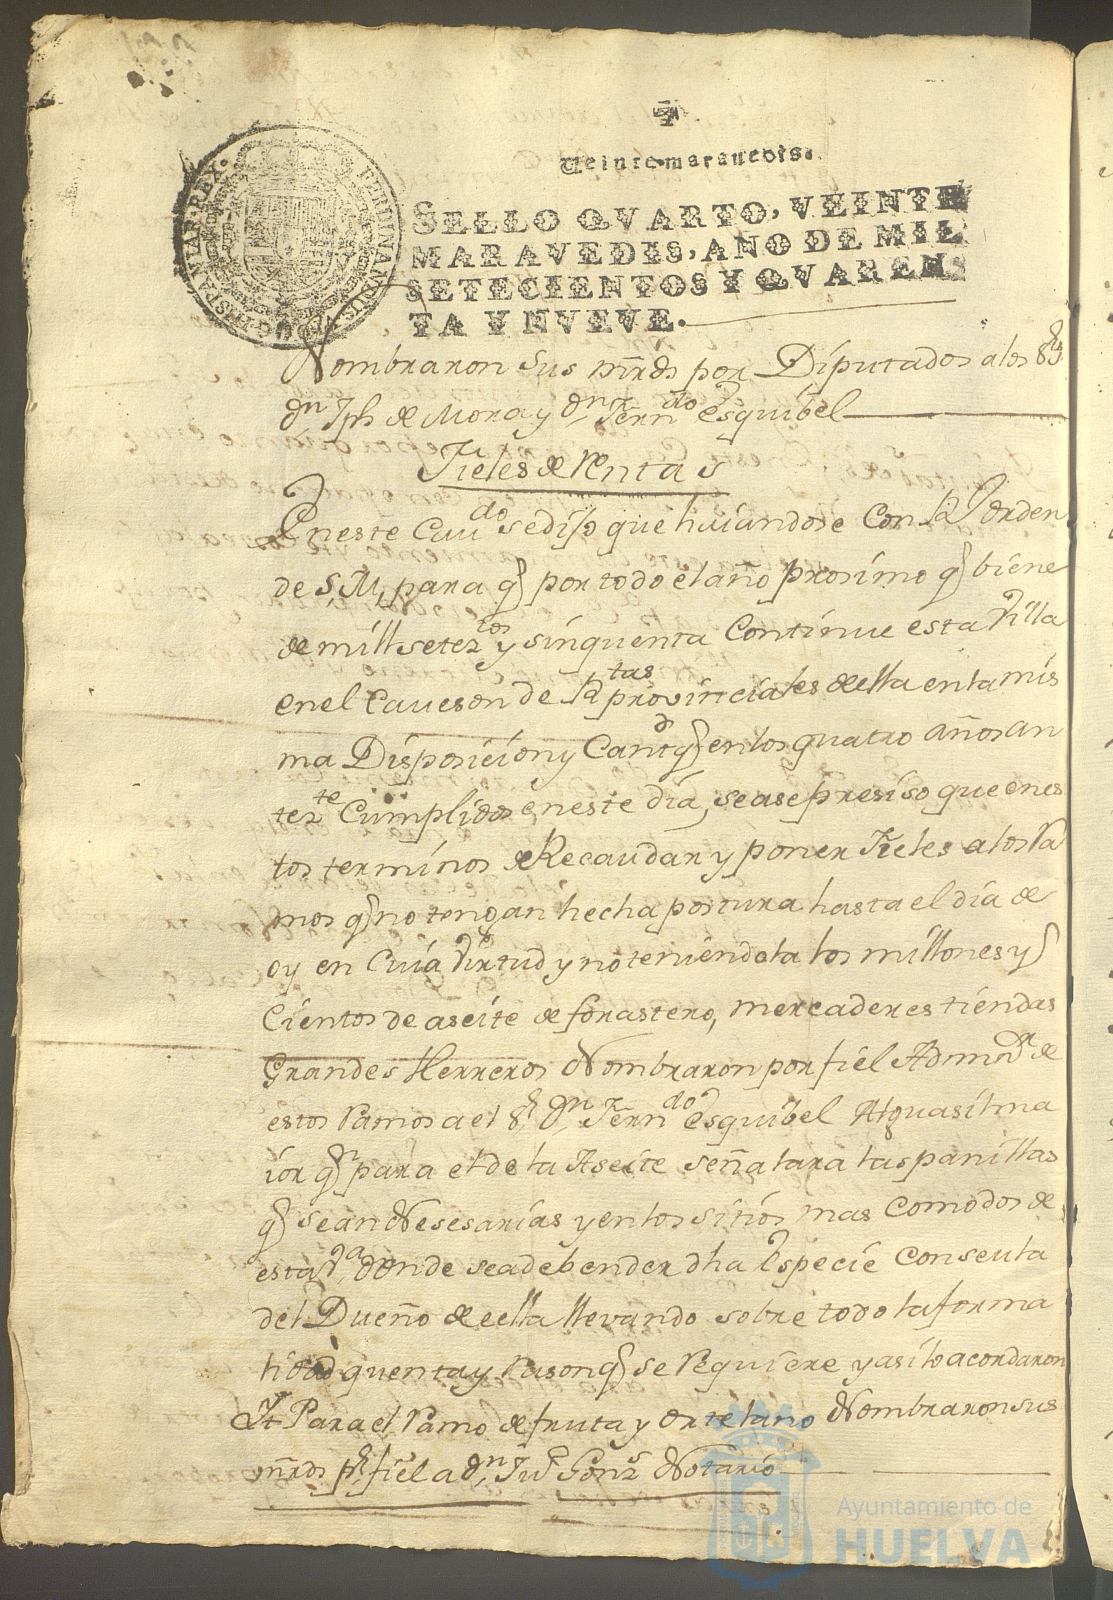 Veinte maravedis.
SELLO QVARTO, VEINTE
MARAVEDIS, AÑO DE MIL
SETECIENTOS Y QVAREN
TA Y NVEVE.
HISPANIAR. REX.
FERDINANDUS
Nombraron Sus mrds por Diputados a los Srs
Dn Jph de Mora y Dn Fern do esquibel
Fieles de Rentas
En este Cau do se dijo que hauiendose Con Rl orden
de S. M. para q por todo el año prosimo q biene
de mill setez tos y sinquenta Continue esta Villa
en el Caueson de R tas provinciales de ella en la mis
ma Disposicion y Cant d q en los quatro años an
tez te Cumplidos en este dia, se ase presiso que en es
tos terminos de Recaudar y poner Fieles a los Ra
mos q no tengan hecha postura hasta el dia de
oy en Cuia Virtud y no teniendola los millones y
Cientos de aseite de forastero, mercaderes tiendas
Grandes Herreros Nombraron por fiel Admor de
estos Ramos a el Sr Dn Fern do esquibel Alguasil ma
ior qn para el de la Aseite señalara las panillas
q sean Nesesarias y en los sitios mas Comodos de
esta Va donde sea de bender dha Especie Con seula
del Dueño de ella lleuando sobre todo la forma
lidad quenta y Rason q se Requiere y asi lo acordaron
It Para el Ramo de fruta y ortelano Nombraron sus
mrds pr fiel a Dn Ju Gonz Notario
Ayuntamiento de
HUELVA